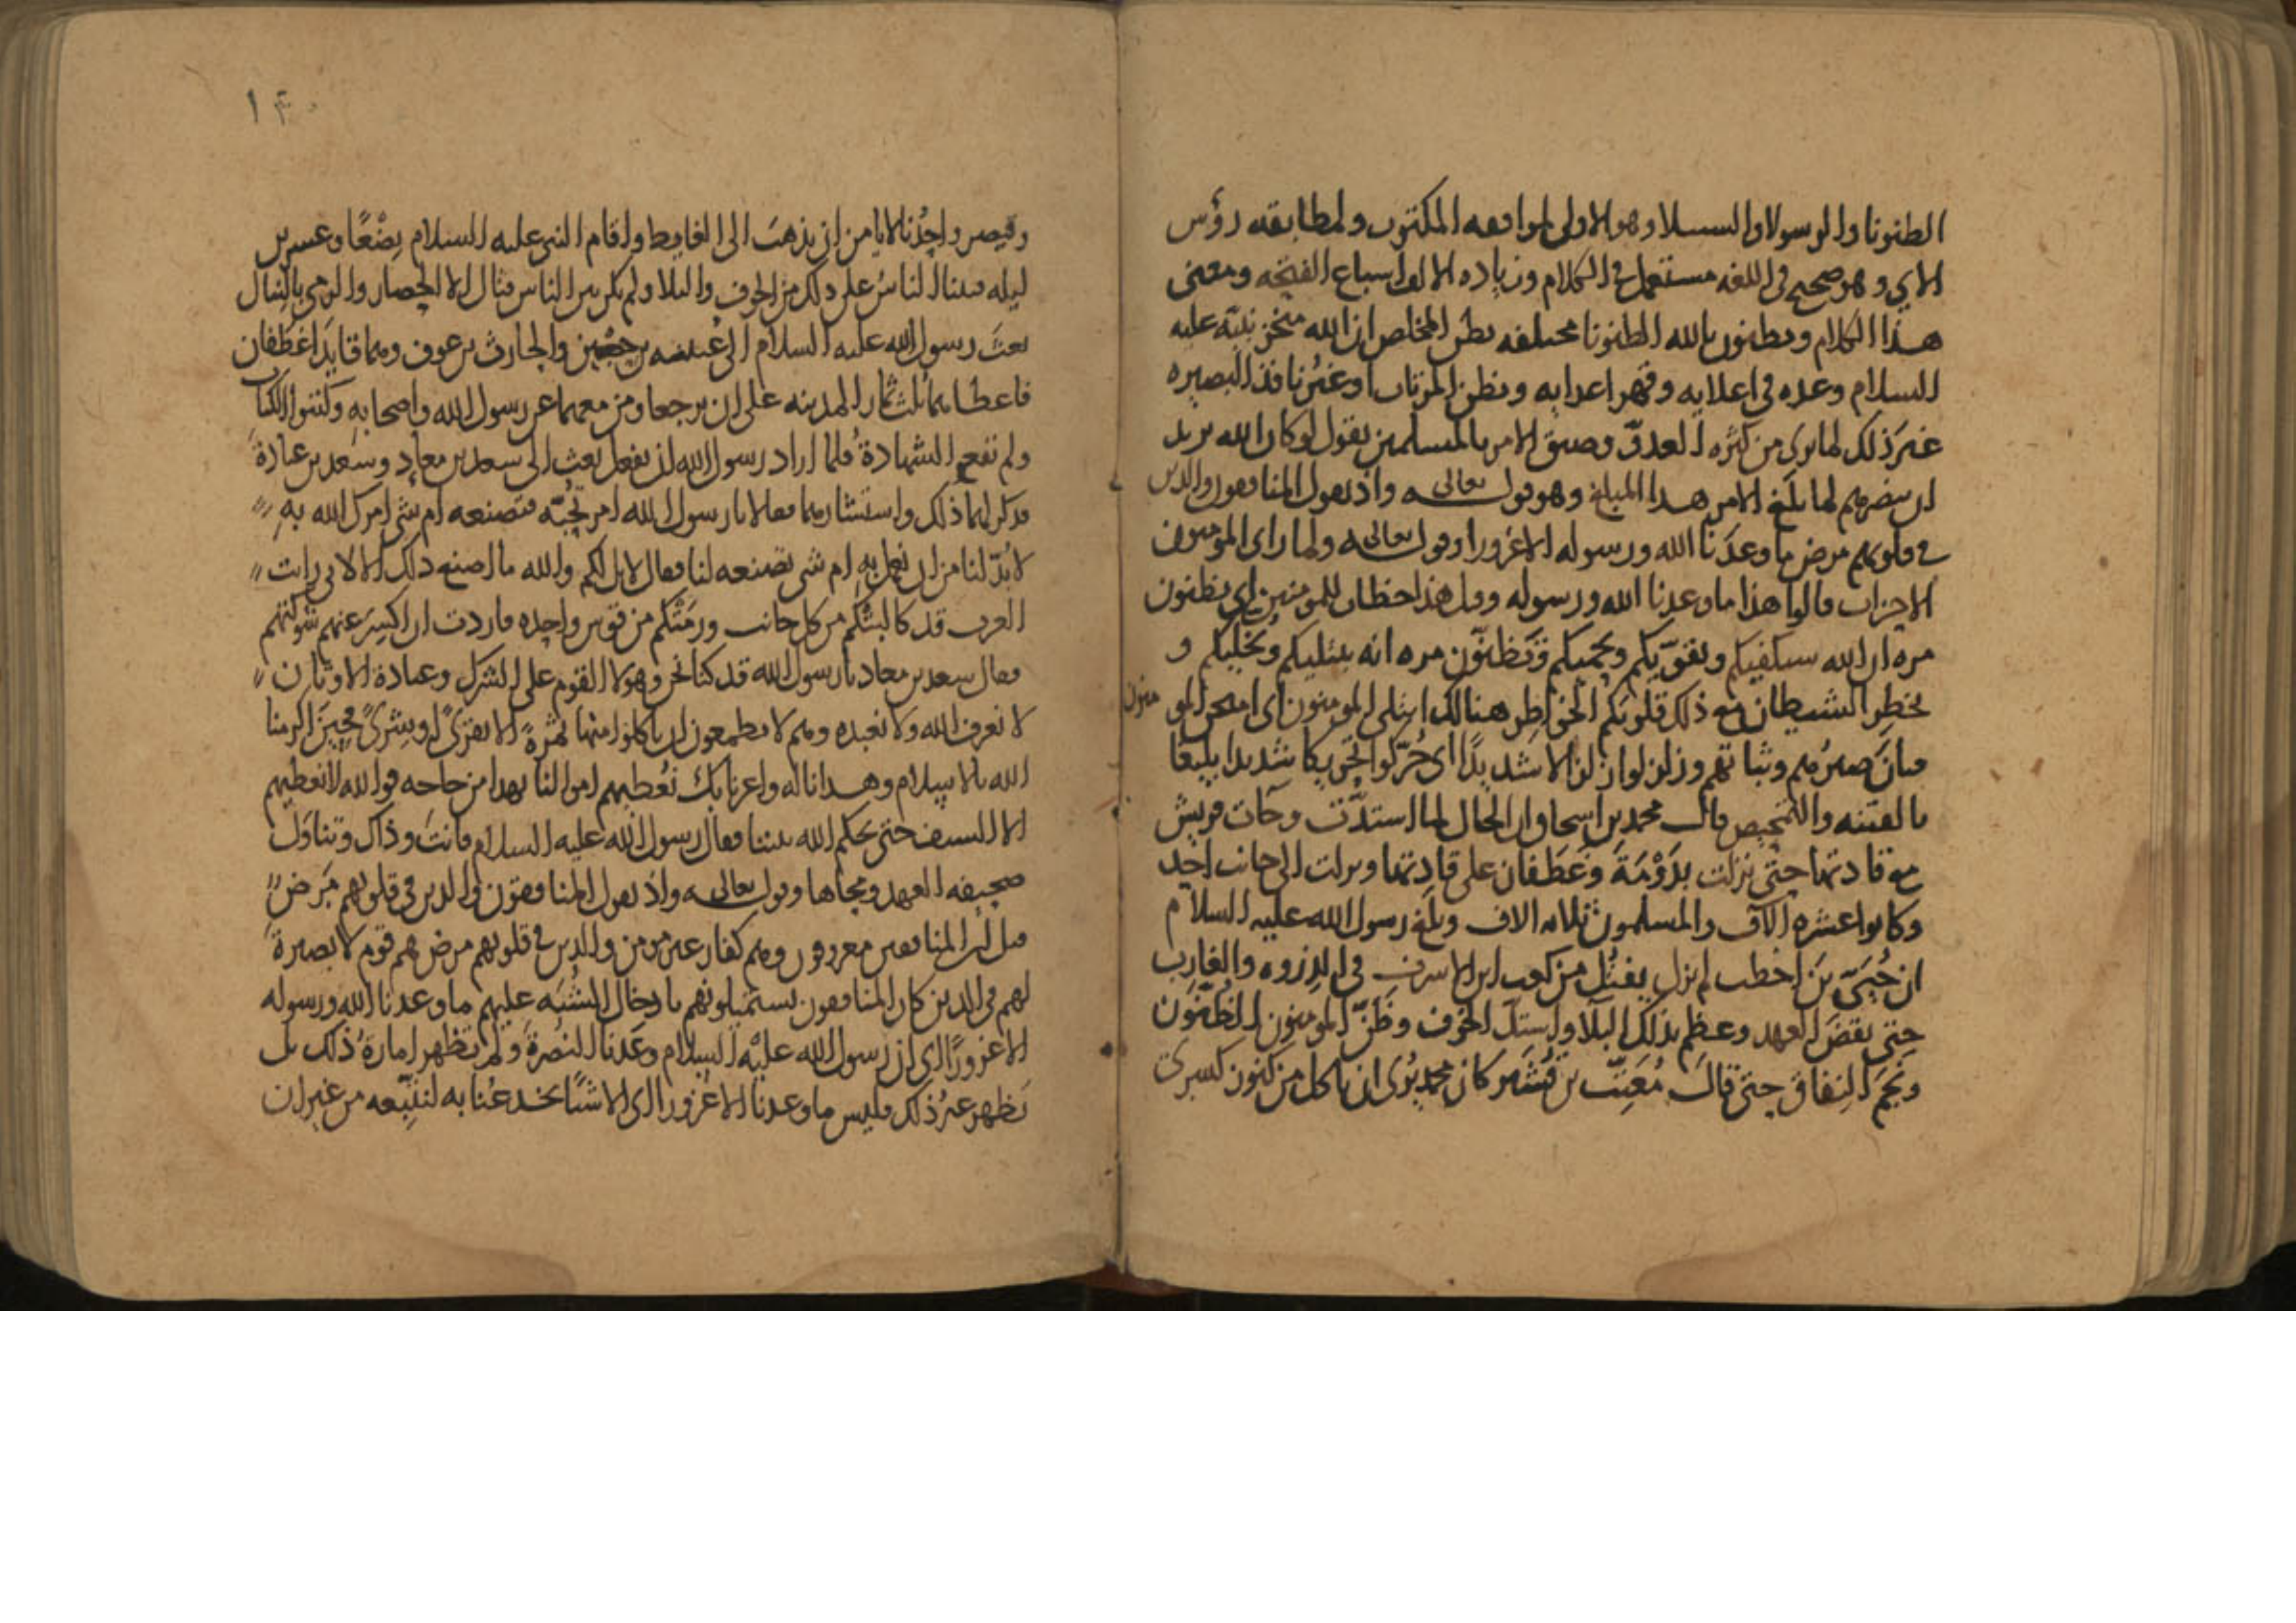 الظنونا والرسولا والسبيلا وهو الاولى لموافقه المكتوب ولمطابقه رؤس
الاي وهو صحيح في اللغه مستعمل في الكلام وزياده الالف لاسباع الفتحه ومعنى
هذا الكلام وتظنون بالله الظنونا مختلفه يظن المخلص ان الله منجز نبيّه عليه
السلام وعده في اعلايه وقهر اعدايه ويظن المرتاب او غير نافذ البصيره
غيرَ ذلك لما يرى من كثره العدوّ وضيق الامر بالمسلمين يقول لو كان الله يريد
ان ينصرهم لما بلغ الامر هذا المبلغ وهو قوله تعالى واذ يقول المنافقون والذين
في قلوبهم مرض ما وعدنا الله ورسوله الا غرورا وقوله تعالى ولما راى المومنون
الاحزاب قالوا هذا ما وعدنا الله ورسوله وقيل هذا خطاب للمومنين اي يظنون
مره ان الله سيكفيكم ويقوّيكم ويحميكم وتَظنّون مره انه يبتليكم ويُخليكم و
يخطِر الشيطان مع ذلك قلوبكم الخواطر هنالك ابتلي المومنون اي امتحن المو منون
فبانَ صبرُهم وثباتهم وزلزلوا زلزالا شديدًا اي حُرّكوا تحريكا شديدا بليغا
بالفتنه والتمحيص قال محمد بن اسحاق ان الحال لما اشتدّت وجات قريش
مع قادتها حتى نزلت بدَوْمَةَ وغَطَفان على قادِتها ونزلت الى جانب احد
وكانوا عشره الآف والمسلمون ثلاثه الاف وبلغ رسول الله عليه السلام
ان حُيَىّ بن اخطب لم يزل يفتِل من كعب ابن الاسرف في الذروه والغارب
حتى نقضَ العهد وعظم بذلك البلآ واشتدّ الخوف وظَنّ المومنون الظنون
ونَجَم النِفاق حتى قال مُعَتِّب بن قُشَير كان محمد يُرى ان ناكل من كنوز كسرى
١٣٠
وقيصر واحِدُنا لا يامن ان يذهبَ الى الغايط واقام النبي عليه السلام بِضْعًا وعشرين
ليله فبينا الناسُ على ذلك من الخوف والبلا ولم يكن بين الناس قتال الا الحصار والرمي بالنبال
بعثَ رسول الله عليه السلام الى عُيينه بن حِصْن والحارث بن عوف وهما قايدَا غَطَفان
فاعطاهما ثُلث ثمار المدينه على ان يرجعا ومن معهما عن رسول الله واصحابه وكتبوا الكتاب
ولم تقع الشهادة فلما اراد رسول الله ان يفعل بعث الى سعد بن معاذ وسَعد بن عبادة
فذكر لهما ذلك واستشارهما فقالا يا رسول الله امر تُحِبّه فتصنعه ام شي امرك الله به
لا بُدّ لنا من ان نعمل به ام شي تصنعه لنا فقال لا بل لكم والله ما اصنع ذلك الا لاني رايت
العرب قد كالبَتْكم من كل جانب ورمَتْكم من قوس واحده فاردت ان اكسِرَ عنهم شوكتهم
فقال سعد بن معاذ يا رسول الله قد كنا نحن وهولا القوم على الشرك وعبادة الاوثان
لا نعرف الله ولا نعبده وهم لا يطمعون ان ياكلوا منها ثمرةً الا بقِرىً او بِشرىً فحينَ اكرمنا
الله بالاسلام وهدانا له واعزنا بك نُعطيهم اموالنا بهذا من حاجه فوالله لا نعطيهم
الا السيف حتى يحكم الله بيننا فقال رسول الله عليه السلام فانتَ وذاك وتناوَل
صحيفه العهد ومحاها وقوله تعالى واذ يقول المنافقون والذين في قلوبهم مَرض
قيل ان المنافقين معروفون وهم كفار غير مومنين والذين في قلوبهم مرض هم قوم لا بصيرة
لهم في الدين كان المنافقون يستميلونهم بادخال الشُبَه عليهم ما وعدنا الله ورسوله
الا غرورًا اي ان رسول الله عليه السلام وعَدنا النُصرةَ ولم تظهر امارةُ ذلك بل
نَظهر غيرُ ذلك فليس ما وعدنا الا غرورا اي الا شيًا يخدعُنا به لنتّبِعه من غير ان